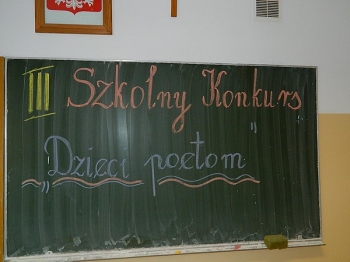 III Szkolny Konkurs
„Dzieci poetom"